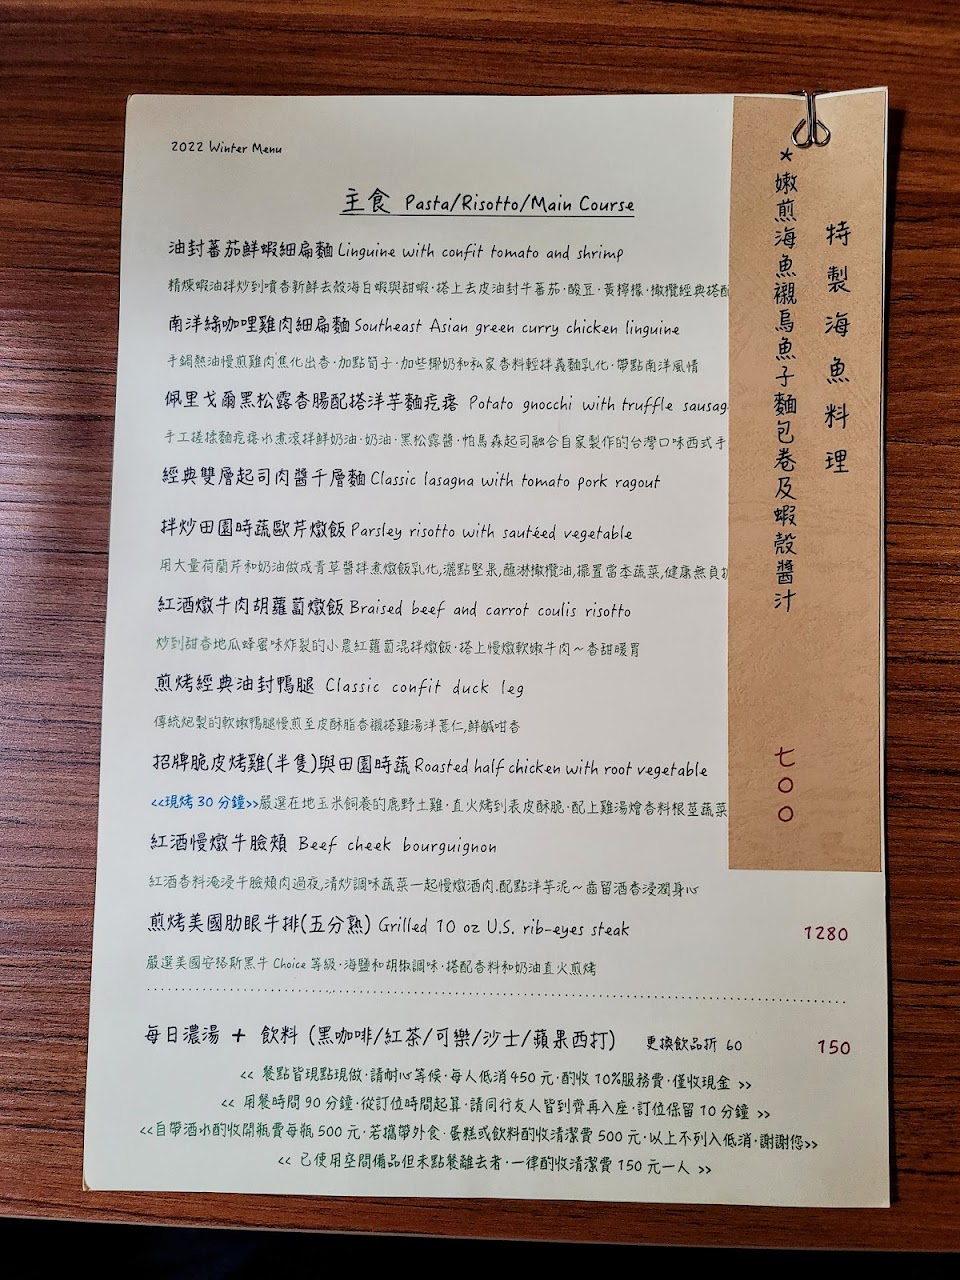 2022 Winter Menu
主食 Pasta/Risotto/Main Course
油封蕃茄鮮蝦細扁麵 Linguine with confit tomato and shrimp
精煉蝦油拌炒到噴香新鮮去殼海白蝦與甜蝦·搭上去皮油封牛蕃茄·酸豆·黃檸檬·橄欖經典搭配
南洋綠咖哩雞肉細扁麵 Southeast Asian green curry chicken linguine
手鍋熱油慢煎雞肉焦化出香·加點筍子·加些椰奶和私家香料輕拌義麵乳化·帶點南洋風情
佩里戈爾黑松露香腸配搭洋芋麵疙瘩 Potato gnocchi with truffle sausag
手工搓揉麵疙瘩水煮滾拌鮮奶油·奶油·黑松露醬·帕馬森起司融合自家製作的台灣口味西式手
經典雙層起司肉醬千層麵 Classic lasagna with tomato pork ragout
拌炒田園時蔬歐芹燉飯 Parsley risotto with sautéed vegetable
用大量荷蘭芹和奶油做成青草醬拌煮燉飯乳化,灑點堅果,蘸淋橄欖油,擺置當季蔬菜,健康無負
紅酒燉牛肉胡蘿蔔燉飯 Braised beef and carrot coulis risotto
炒到甜香地瓜蜂蜜味炸裂的小農紅蘿蔔混拌燉飯·搭上慢燉軟嫩牛肉～香甜暖胃
煎烤經典油封鴨腿 Classic confit duck leg
傳統炮製的軟嫩鴨腿慢煎至皮酥脂香襯搭雞湯洋薏仁,鮮鹹咁香
招牌脆皮烤雞(半隻)與田園時蔬 Roasted half chicken with root vegetable
<<現烤 30 分鐘>>嚴選在地玉米飼養的鹿野土雞·直火烤到表皮酥脆·配上雞湯燴香料根莖蔬菜
紅酒慢燉牛臉頰 Beef cheek bourguignon
紅酒香料淹浸牛臉頰肉過夜,清炒調味蔬菜一起慢燉酒肉.配點洋芋泥～齒留酒香浸潤身心
煎烤美國肋眼牛排(五分熟) Grilled 10 oz U.S. rib-eyes steak 1280
嚴選美國安格斯黑牛 Choice 等級·海鹽和胡椒調味·搭配香料和奶油直火煎烤
每日濃湯 + 飲料 (黑咖啡/紅茶/可樂/沙士/蘋果西打) 更換飲品折 60 150
<< 餐點皆現點現做·請耐心等候·每人低消450元·酌收10%服務費·僅收現金 >>
<< 用餐時間90分鐘·從訂位時間起算·請同行友人皆到齊再入座·訂位保留10分鐘 >>
<<自帶酒水酌收開瓶費每瓶 500 元·若攜帶外食·蛋糕或飲料酌收清潔費 500 元·以上不列入低消·謝謝您>>
<< 已使用空間備品但未點餐離去者·一律酌收清潔費 150 元一人 >>
特製海魚料理
*嫩煎海魚襯烏魚子麵包卷及蝦殼醬汁
七〇〇